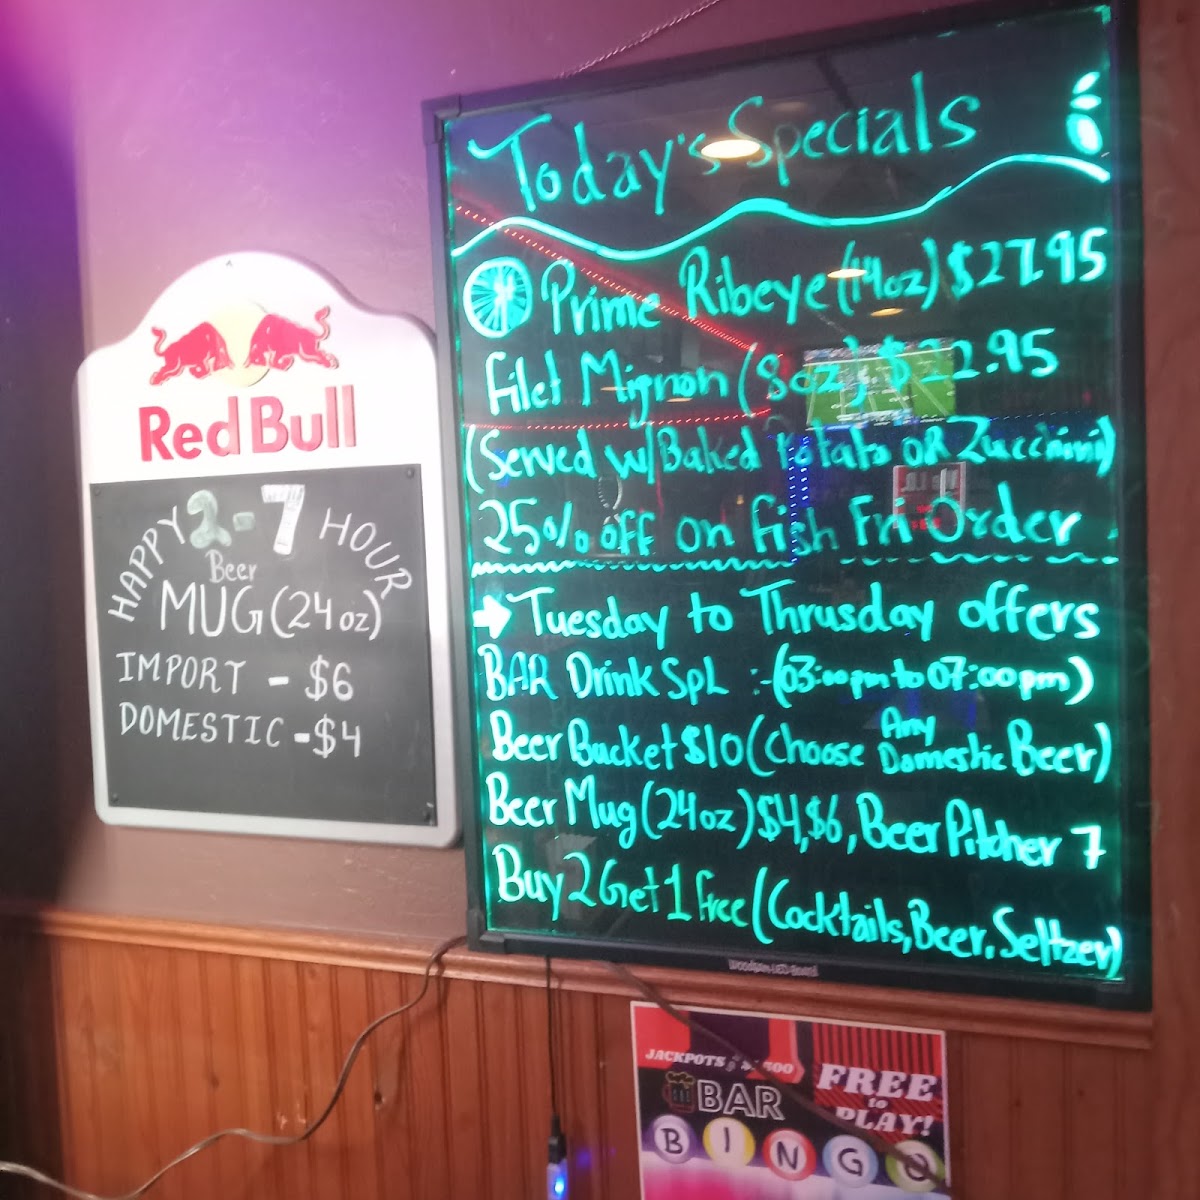 Red Bull
HAPPY 2-7 HOUR
Beer
MUG (24oz)
IMPORT - $6
DOMESTIC - $4
Today's Specials
Prime Ribeye (14oz) $27.95
Filet Mignon (8oz) $22.95
(Served w/ Baked Potato OR Zucchini)
25% off on Fish Fri Order
Tuesday to Thrusday offers
BAR Drink Spl :-(03:00pm to 07:00pm)
Beer Bucket $10 (Choose Any Domestic Beer)
Beer Mug (24oz) $4,$6, Beer Pitcher 7
Buy 2 Get 1 Free (Cocktails, Beer, Seltzer)
JACKPOTS
FREE
to
PLAY!
BAR
BINGO